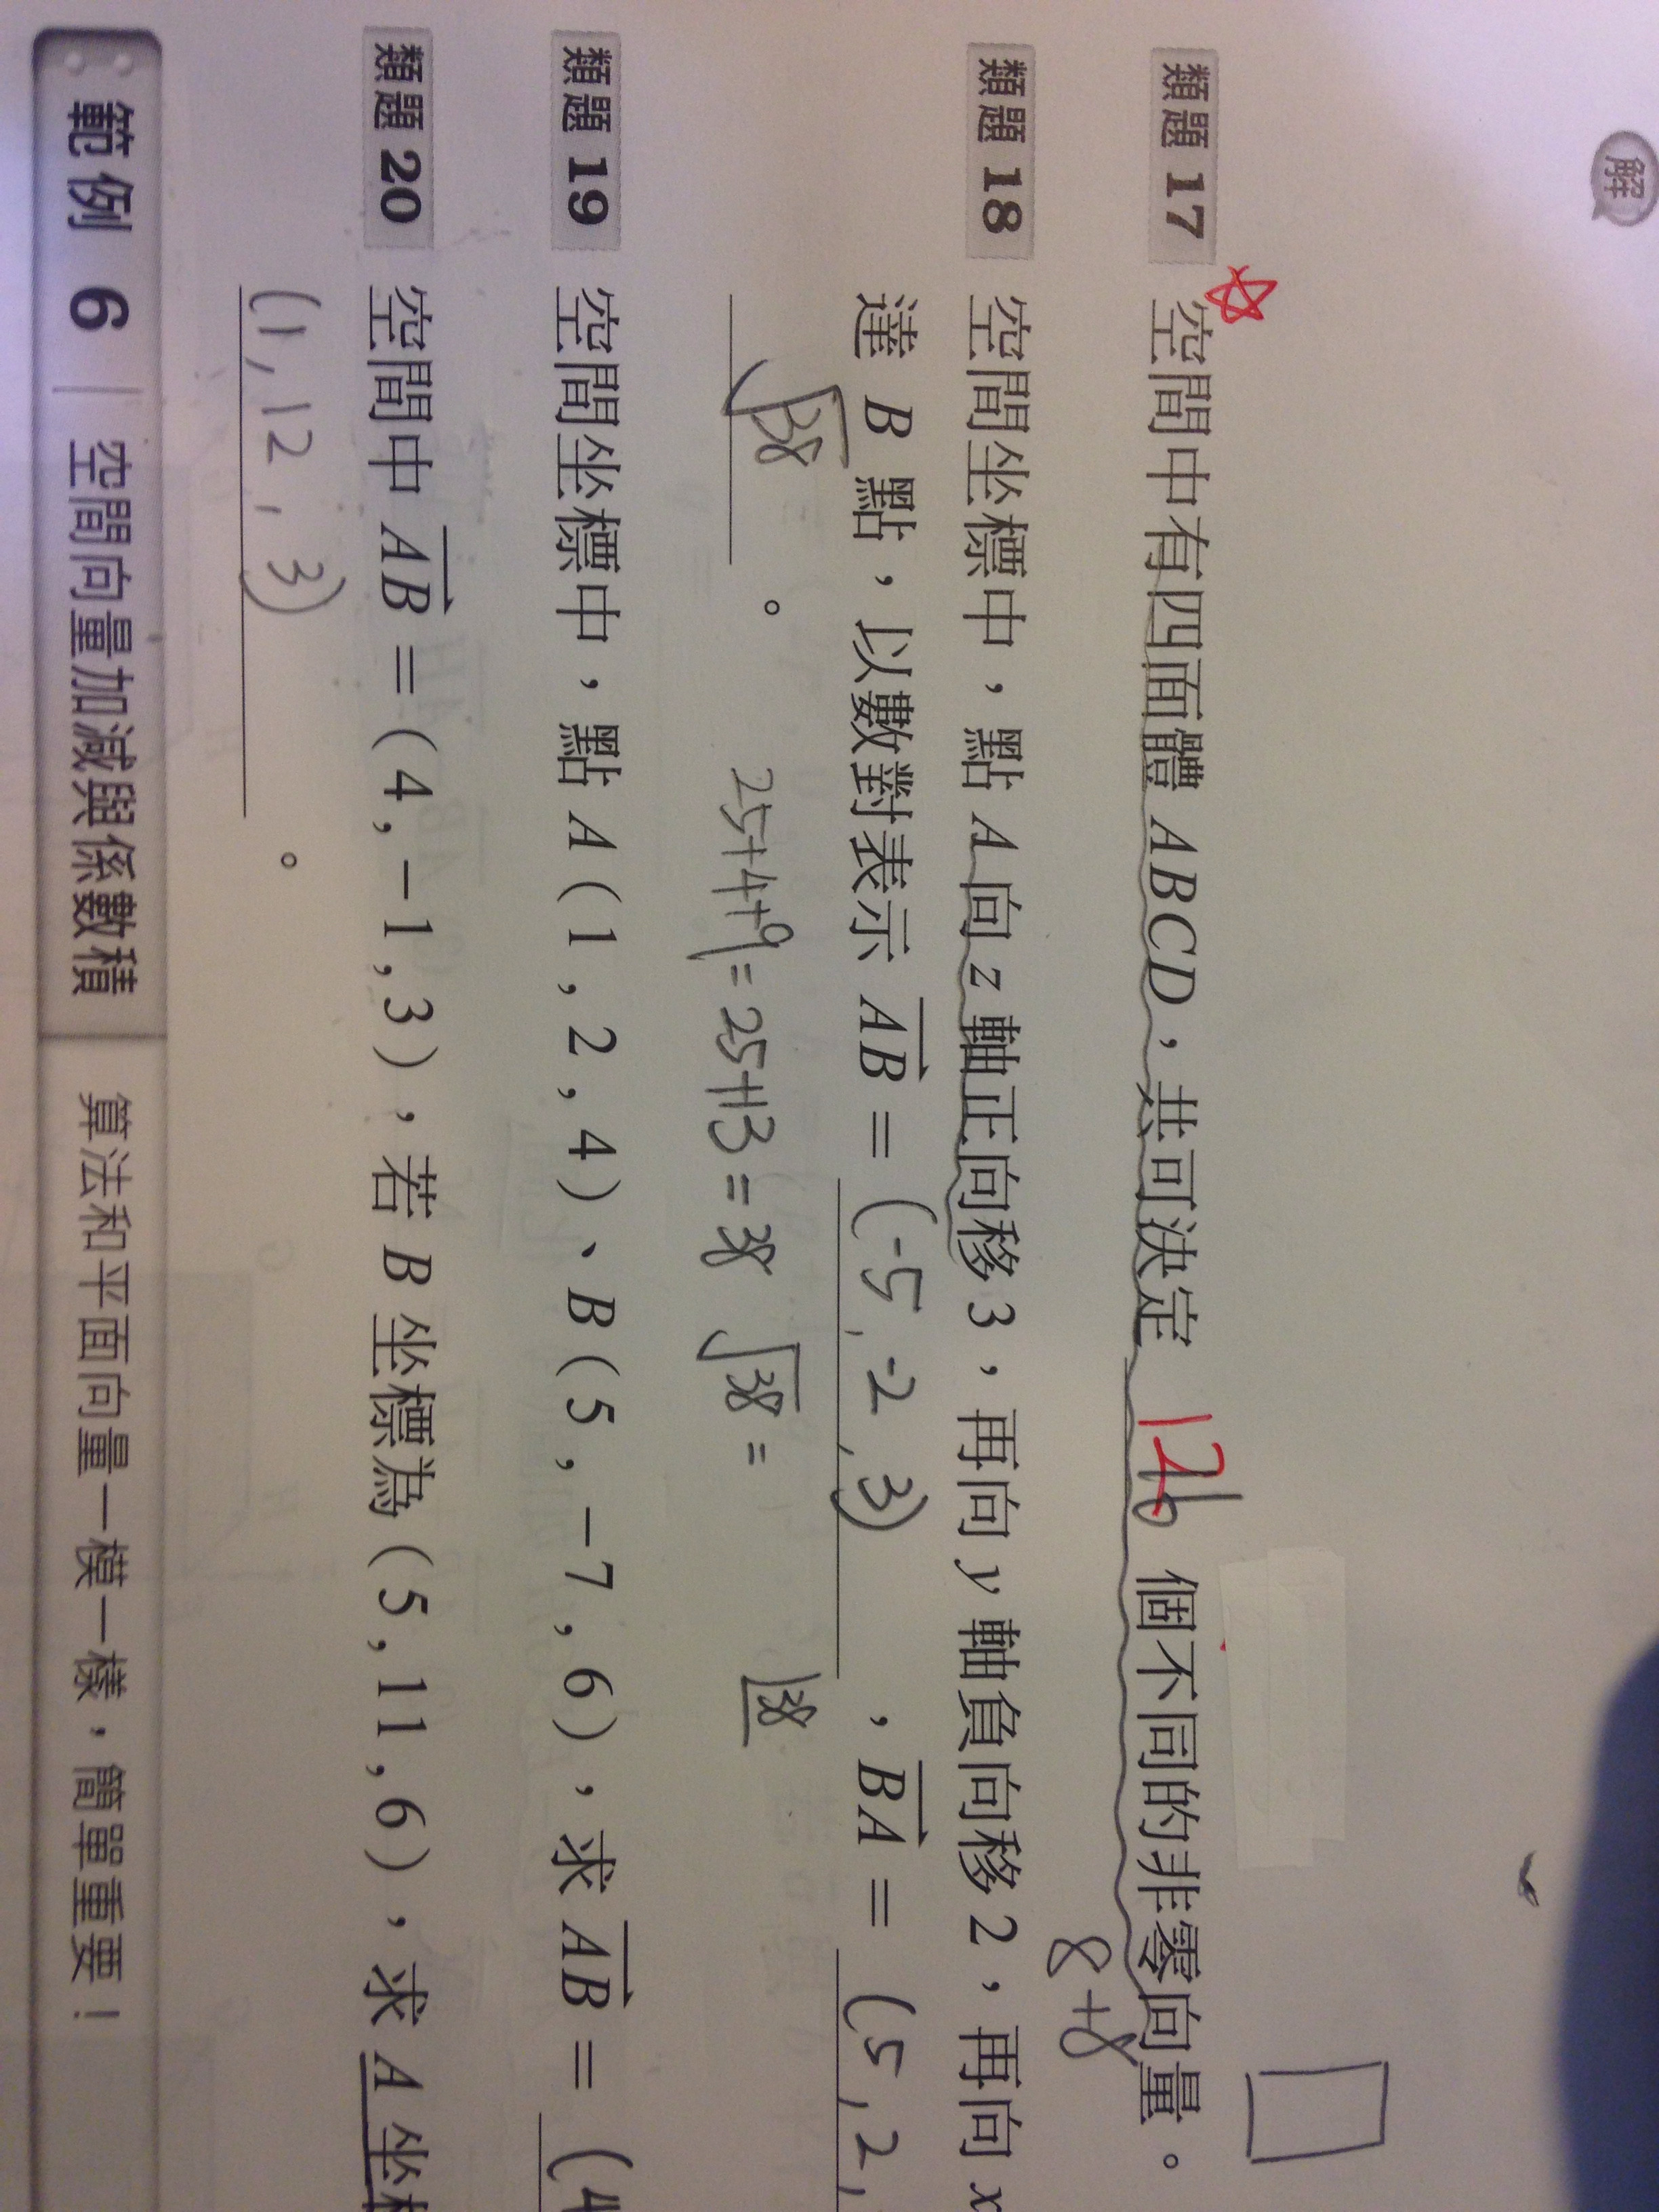 解
類題 17 空間中有四面體 ABCD，共可決定 12 個不同的非零向量。
8+8
類題 18 空間坐標中，點 A 向 z 軸正向移 3，再向 y 軸負向移 2，再向 x
達 B 點，以數對表示 AB = (-5,-2,3)，BA = (5,2,
√38。
25+4+9=25+13=38 √38 =
√38
類題 19 空間坐標中，點 A(1,2,4)、B(5,-7,6)，求 AB = (4
類題 20 空間中 AB = (4,-1,3)，若 B 坐標為(5,11,6)，求 A 坐標
(1,12,3)。
範例 6 空間向量加減與係數積 算法和平面向量一模一樣，簡單重要！